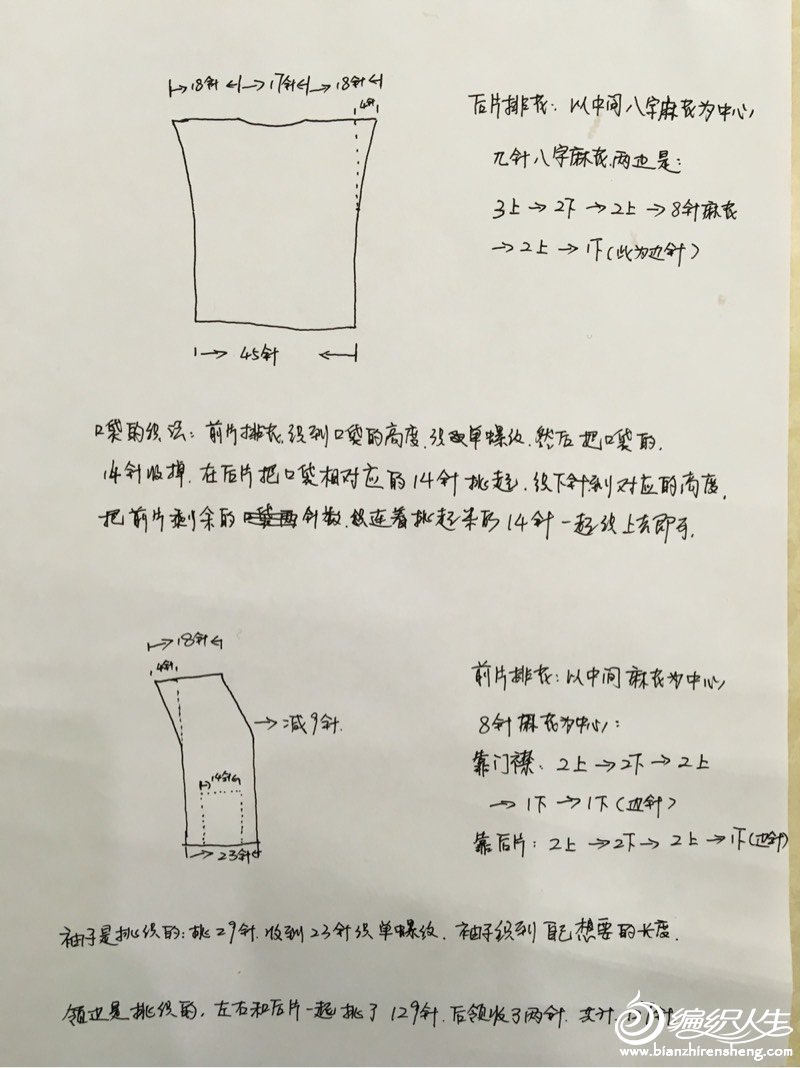 →18针←→17针←→18针←
4针
后片排花：以中间八字麻花为中心，
九针八字麻花，两边是：
3上→2下→2上→8针麻花
→2上→1下（此为边针）
→ 45针 ←
口袋的织法：前片排花，织到口袋的高度，织单螺纹，然后把口袋的，
14针收掉，在后片把口袋相对应的14针挑起，织下针到对应的高度，
把前片剩余的针数，连着挑起来的14针一起织上去即可。
→18针←
4针
→减9针
→14针←
→23针←
前片排花：以中间麻花为中心，
8针麻花为中心：
靠门襟：2上→2下→2上
→1下→1下（边针）
靠后片：2上→2下→2上→1下（边针）
袖子是挑织的：挑29针，收到23针织单螺纹，袖子织到自己想要的长度。
领边是挑织的，左右和后片一起挑了129针，后领收了两针，共计
编织人生
www.bianzhirensheng.com